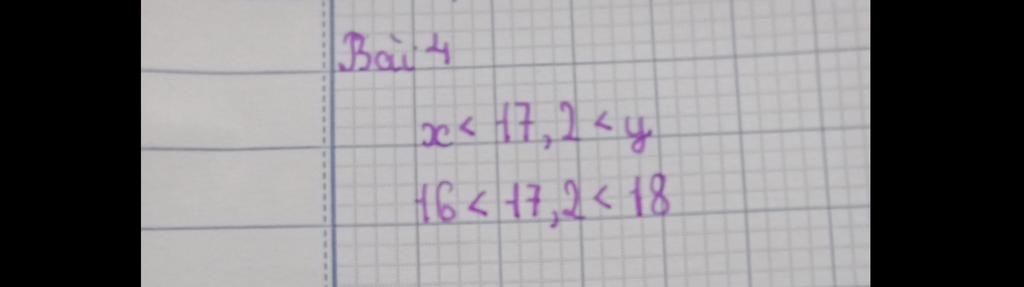 Bài 4
x < 17,2 < y
16 < 17,2 < 18